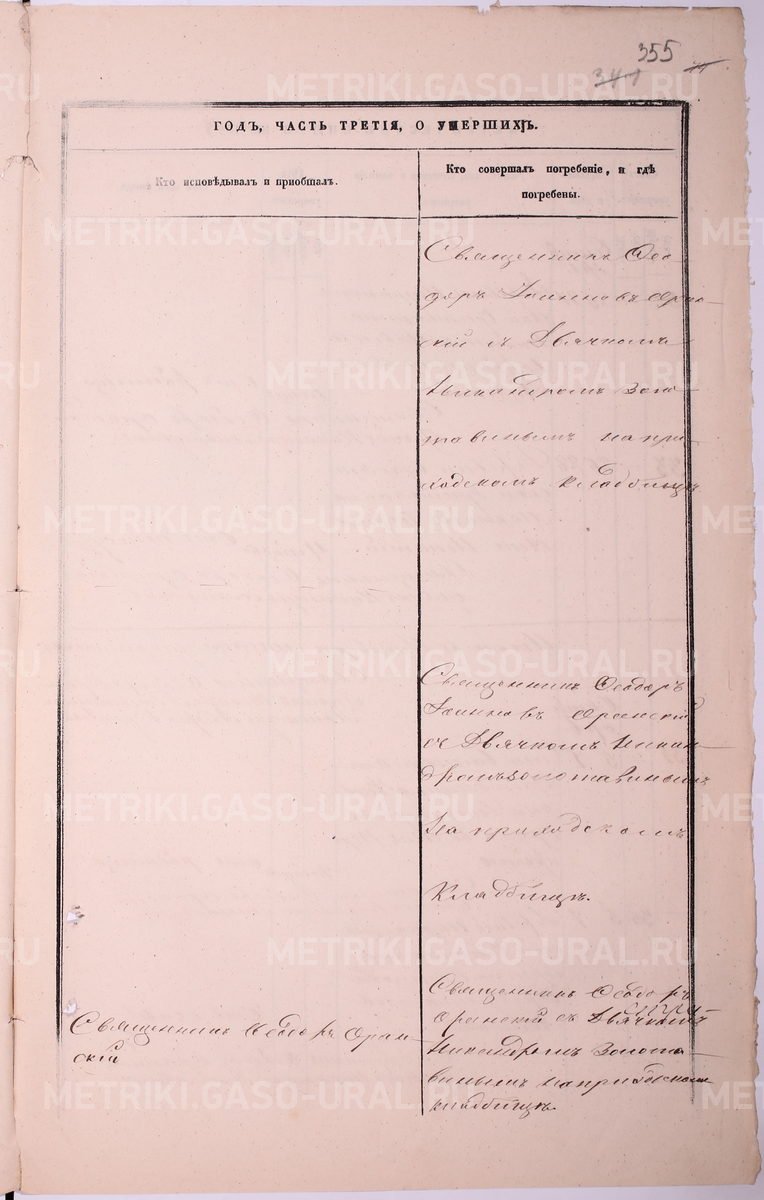 355
341
ГОДЪ, ЧАСТЬ ТРЕТІЯ, О УМЕРШИХЪ.
Кто исповѣдывалъ и пріобщалъ.
Кто совершалъ погребеніе, и гдѣ
погребены.
Священникъ Ѳео-
доръ Іоанновъ Оран-
скій съ Дьячкомъ
Никандромъ Золо
товинымъ на при
ходскомъ кладбищѣ
Священникъ Ѳеодоръ
Іоанновъ Оранскій
съ Дьячкомъ Никан-
дромъ Золотавинымъ
на приходскомъ
кладбищѣ.
Священникъ Ѳеодоръ Оран-
скій
Священникъ Ѳеодоръ
Оранскій съ Дьячкомъ
Никандромъ Золота-
винымъ на приходскомъ
кладбищѣ.
METRIKI.GASO-URAL.RU